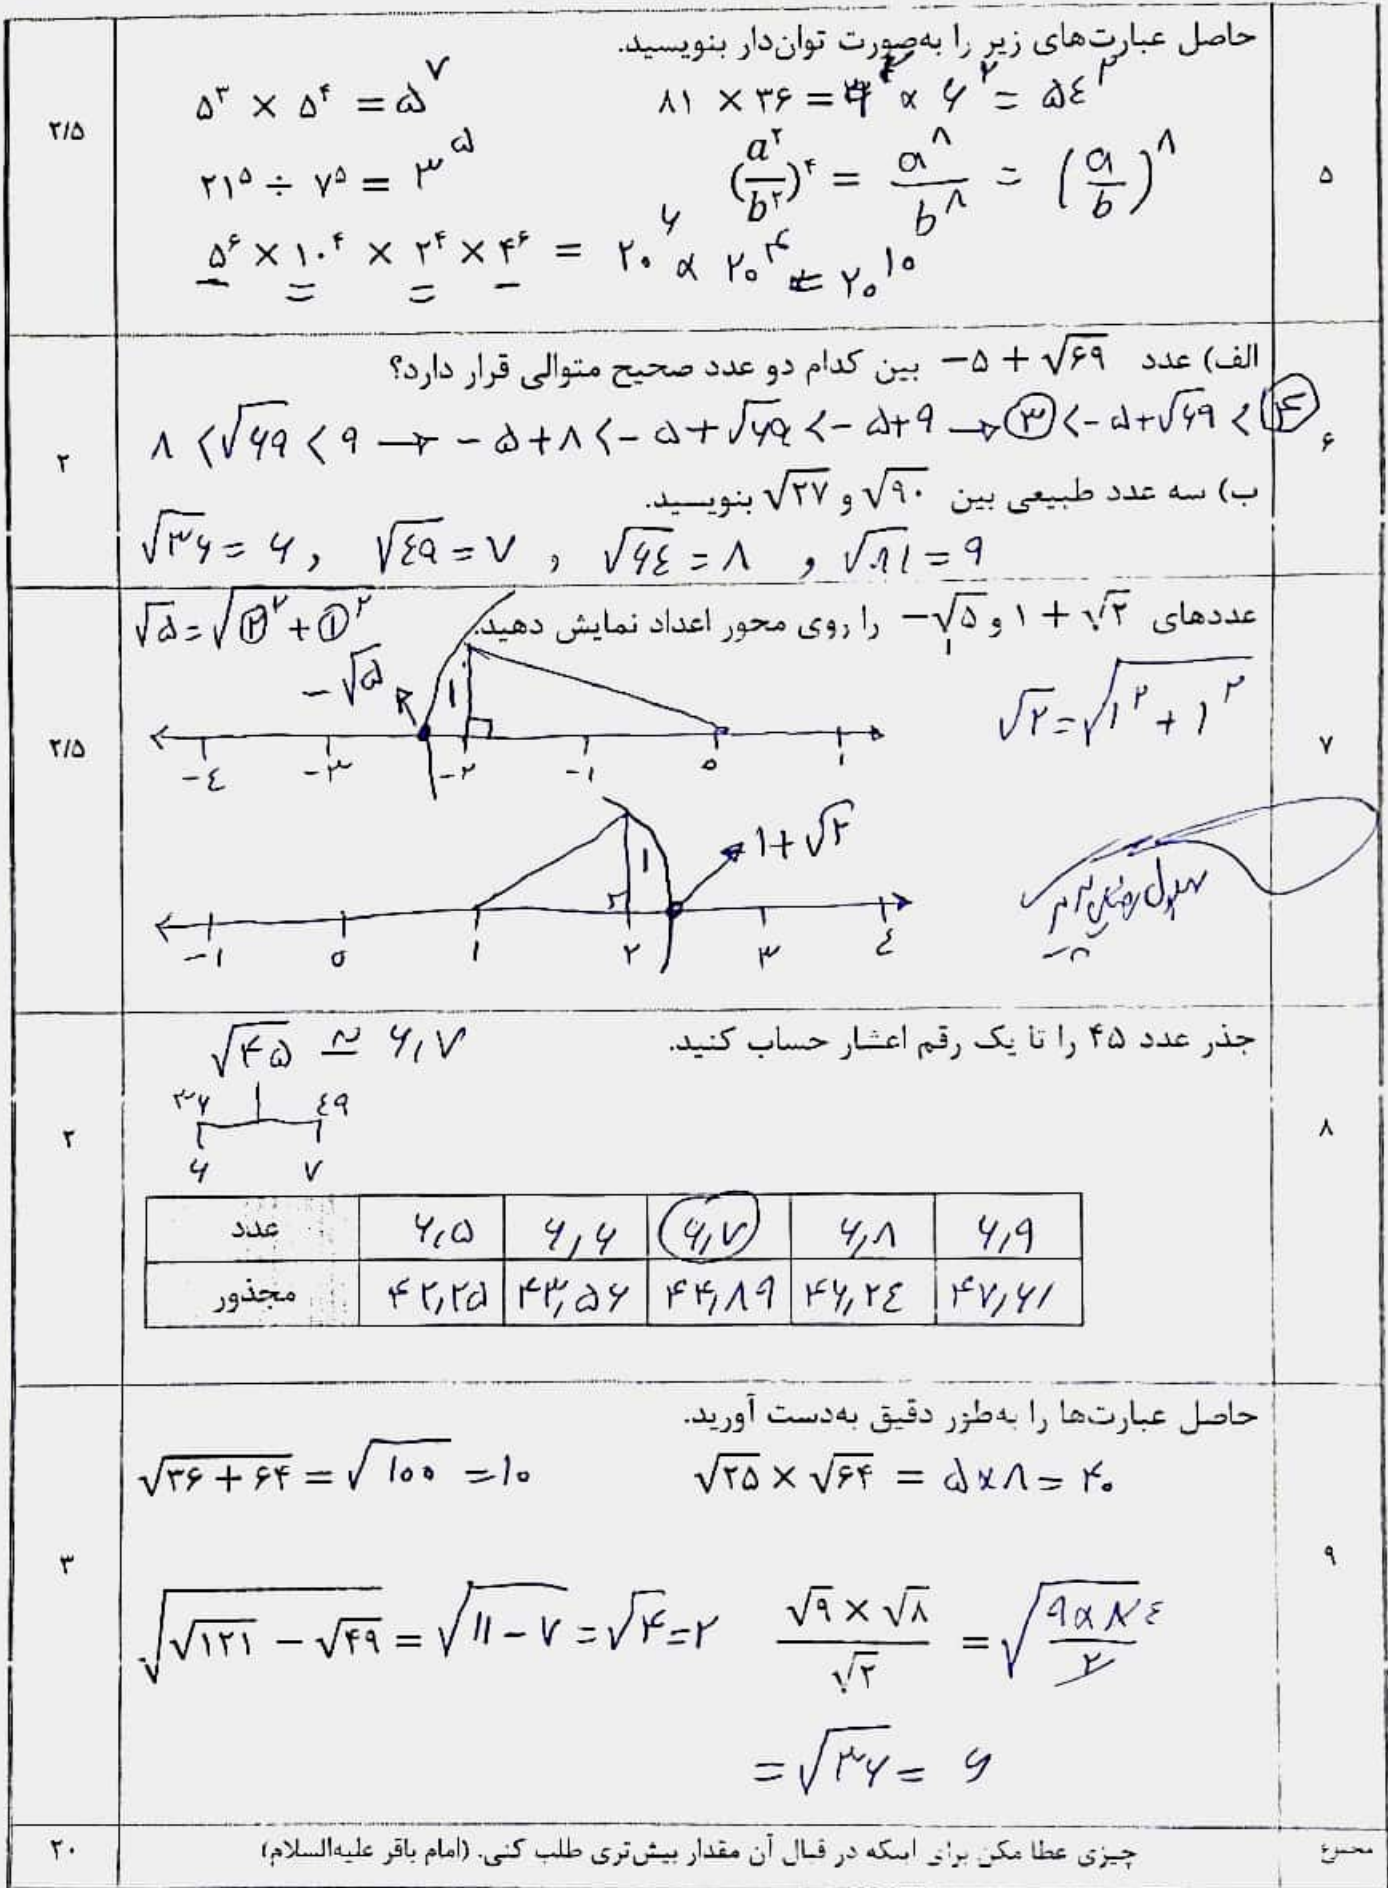 حاصل عبارت‌های زیر را به‌صورت توان‌دار بنویسید.
۵
۲/۵
۵^۳ × ۵^۴ = ۵^۷
۸۱ × ۳۶ = ۹^۲ × ۶^۲ = ۵۴^۲
۲۱^۵ ÷ ۷^۵ = ۳^۵
(a^۲/b^۲)^۴ = a^۸/b^۸ = (a/b)^۸
۵^۶ × ۱۰^۴ × ۲^۴ × ۴^۶ = ۲۰^۶ × ۲۰^۴ = ۲۰^۱۰
الف) عدد -۵ + √۶۹ بین کدام دو عدد صحیح متوالی قرار دارد؟
۸ < √۶۹ < ۹ → -۵+۸ < -۵+√۶۹ < -۵+۹ → ۳ < -۵+√۶۹ < ۴
۶
۲
ب) سه عدد طبیعی بین √۹۰ و √۲۷ بنویسید.
√۳۶ = ۶ , √۴۹ = ۷ , √۶۴ = ۸ , √۸۱ = ۹
عددهای ۱ + √۲ و -√۵ را روی محور اعداد نمایش دهید.
√۵ = √۲^۲ + ۱^۲
-√۵
۱
√۲ = √۱^۲ + ۱^۲
۷
۲/۵
-۴ -۳ -۲ -۱ ۰ ۱
۱
۱+√۲
-۱ ۰ ۱ ۲ ۳ ۴
جذر عدد ۴۵ را تا یک رقم اعشار حساب کنید.
√۴۵ ≃ ۶,۷
۳۶ ۴۹
۶ ۷
۸
۲
عدد ۶,۵ ۶,۶ ۶,۷ ۶,۸ ۶,۹
مجذور ۴۲,۲۵ ۴۳,۵۶ ۴۴,۸۹ ۴۶,۲۴ ۴۷,۶۱
حاصل عبارت‌ها را به‌طور دقیق به‌دست آورید.
√۳۶ + ۶۴ = √۱۰۰ = ۱۰
√۲۵ × √۶۴ = ۵×۸ = ۴۰
۹
۳
√√۱۲۱ - √۴۹ = √۱۱-۷ = √۴ = ۲
√۹ × √۸ / √۲ = √۹×۸/۲ ۴
= √۳۶ = ۶
مجموع
چیزی عطا مکن برای اینکه در قبال آن مقدار بیش‌تری طلب کنی. (امام باقر علیه‌السلام)
۲۰